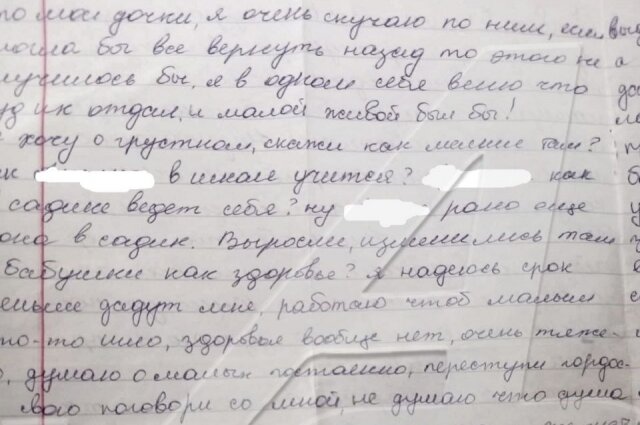 то мои дочки, я очень скучаю по ним, если бы
могла бы все вернуть назад то этого не
лучилось бы, я в одном себя веню что
уд их отдал, и малой живой был бы!
хочу о грустном, скажи как мелкие там?
к в школе учится? как
садике ведет себя? ну рано още
она в садик. Выросли, изменились там
бабушки как здоровье? я надеюсь срок
еньше дадут мне, работаю чтоб малым
то-то шло, здоровья вообще нет, очень тяже-
о, думаю о малых постоянно, переступи гордос-
свою поговори со мной, не думаю что дума